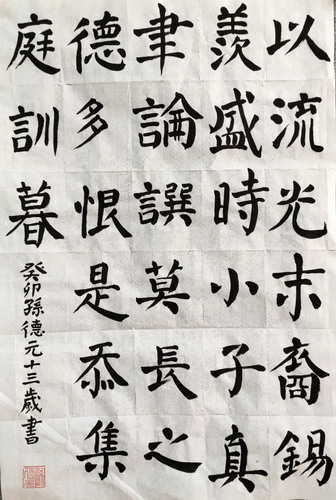 以流光末裔錫
羨盛時小子真
聿論譔莫長之
德多恨是忝集
庭訓暮
癸卯孫德元十三歲書